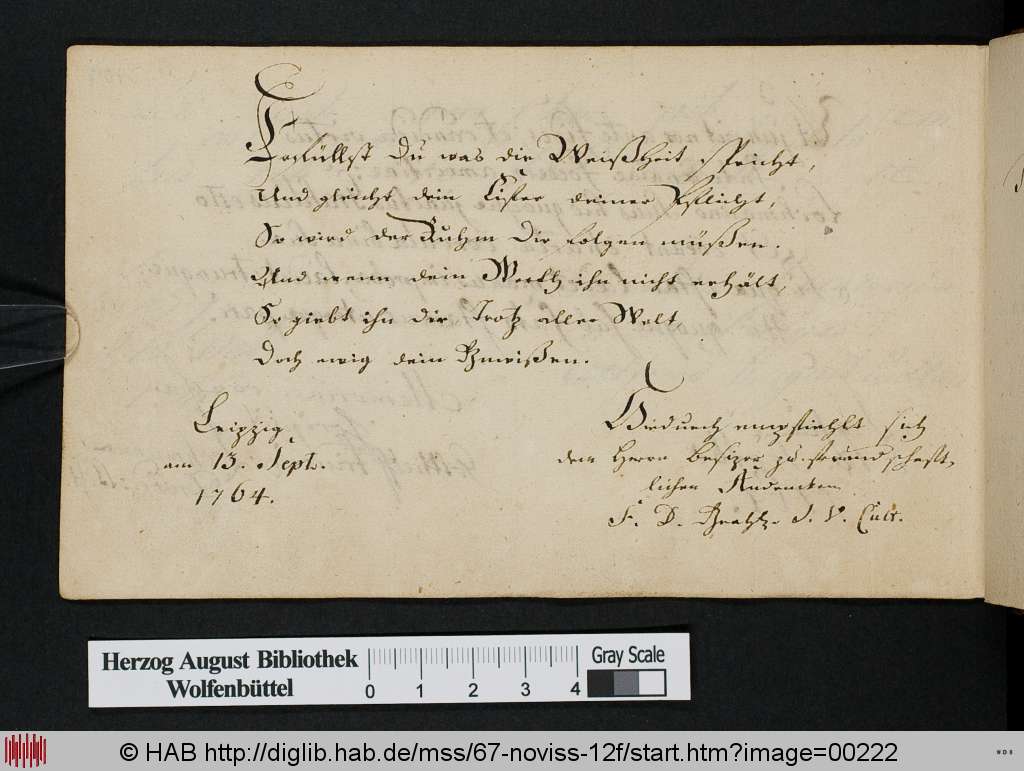 Erfüllst Du was die Weißheit spricht,
Und gleicht dein Eifer deiner Pflicht,
So wird der Ruhm Dir folgen müßen.
Und wenn dein Werth ihn nicht erhält,
So giebt ihn dir Trotz aller Welt
Doch ewig dein Gewißen.
Leipzig
am 13. Sept.
1764.
Hiedurch empfiehlt sich
dem Herrn Besizer zu freundschaft-
lichen Andencken
F. D. J. U. Cult.
Herzog August Bibliothek
Wolfenbüttel
0 1 2 3 4
Gray Scale
© HAB http://diglib.hab.de/mss/67-noviss-12f/start.htm?image=00222